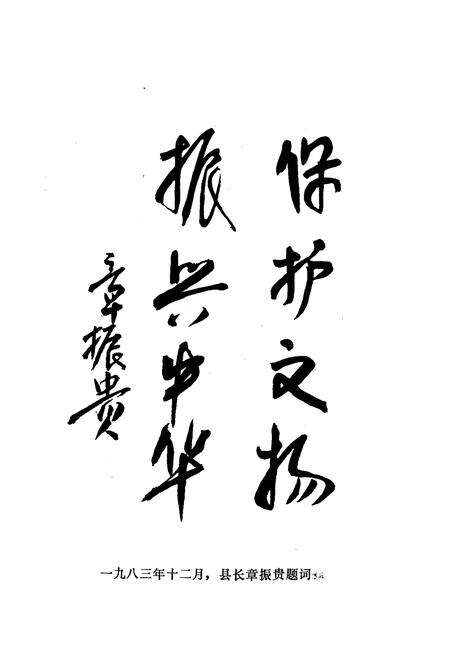 保护文物
振兴中华
章振贵
一九八三年十二月，县长章振贵题词